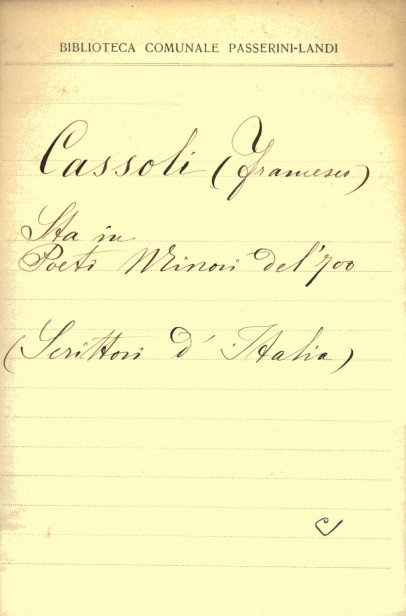 BIBLIOTECA COMUNALE PASSERINI-LANDI
Cassoli (Francesco)
Sta in
Poeti Minori del '700
(Scrittori d' Italia)